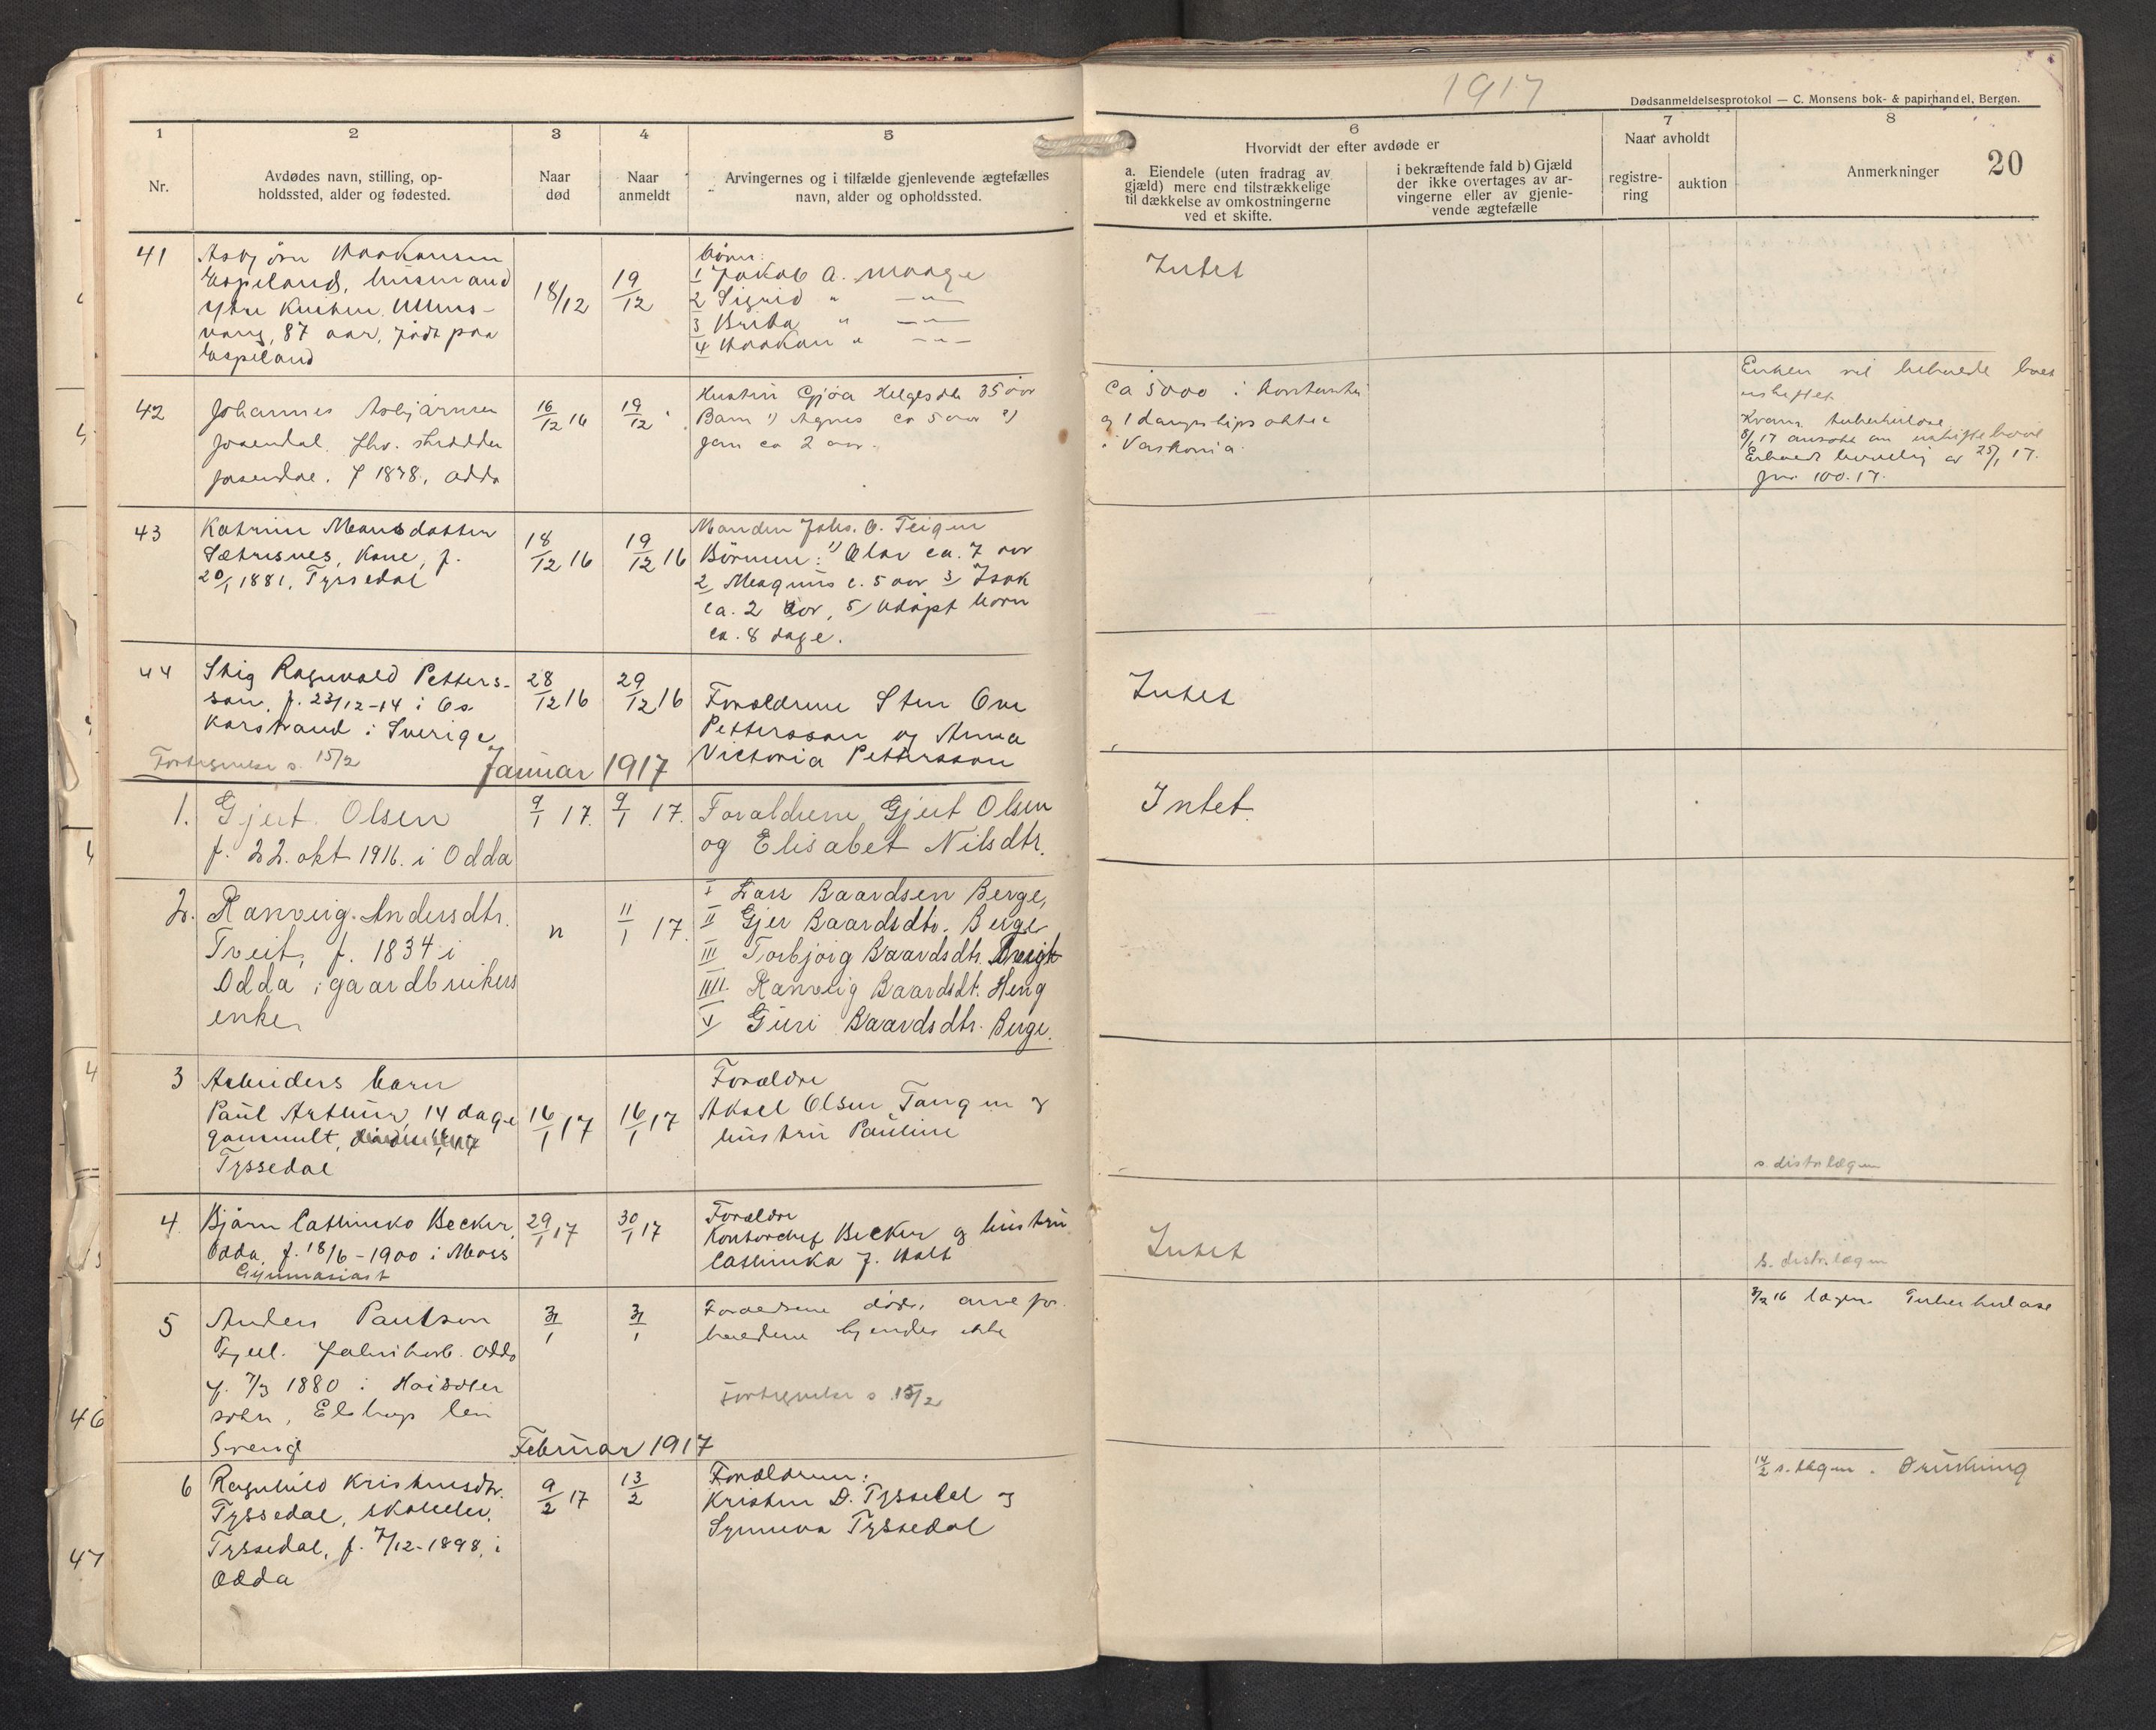 1917
Dødsanmeldelsesprotokol — C. Monsens bok- & papirhandel, Bergen.
20
1
2
3
4
5
6
7
8
Nr.
Avdødes navn, stilling, op-
holdssted, alder og fødested.
Naar
død
Naar
anmeldt
Arvingernes og i tilfælde gjenlevende ægtefælles
navn, alder og opholdssted.
Hvorvidt der efter avdøde er
a. Eiendele (uten fradrag av
gjæld) mere end tilstrækkelige
til dækkelse av omkostningerne
ved et skifte.
i bekræftende fald b) Gjæld
der ikke overtages av ar-
vingerne eller av gjenle-
vende ægtefælle
Naar avholdt
registre-
ring
auktion
Anmerkninger
41
Asbjørn Haakonsen
Espeland, husmand
Ytre Kvitne, Ullens-
vang, 87 aar, født paa
Espeland
18/12
19/12
børn:
1 Jakob A. Maage
2 Sigrid " — " —
3 Brita " — " —
4 Haakon " — " —
Intet
42
Johannes Asbjørnsen
Josendal. fhv. skrædder
Josendal. f 1878, Odda
16/12 16
19/12 "
Hustru Gjøa Helgesdtr 35 aar
Barn 1) Agnes ca 5 aar 2)
Jon ca 2 aar.
Ca 5000 i kontanter
og 1 dampskipsaktie
i Vaskonia.
Enken vil behonde boet
uskiftet
Kvam. tuberkulose
8/1 17 ansøkt om uskifte bevil
Erholdt bevilling av 25/1 17.
Jnr 100.17.
43
Katrine Monsdatter
Sætresnes, Kone, f.
20/1 1881, Tyssedal
18/12 16
19/12 16
Manden Johs. O. Teigen
Børnene: 1) Olav ca. 7 aar
2, Magnus c. 5 aar 3/ Isak
ca. 2 aar, 5/ Udøpt barn
ca. 8 dage.
44
Stig Ragnvald Petters-
son, f. 23/12-14 i Os
karstrand i Sverige
28/12 16
29/12 16
Forældrene Sten Ove
Pettersson og Anna
Victoria Pettersson
Intet
Fortegnelse s. 15/2
Januar 1917
1.
Gjert Olsen
f. 22. okt 1916. i Odda
9/1 17.
9/1 17.
Forældrene Gjert Olsen
og Elisabet Nilsdtr.
Intet.
2.
Ranveig Andersdtr.
Tveit, f. 1834 i
Odda, gaardbrukers
enke.
"
11/1 17.
I Lars Baardsen Berge,
II Gjer Baardsdtr. Berge
III Torbjørg Baardsdtr.
IIII. Ranveig Baardsdt.
V Guri Baardsdtr. Berge.
3
Arbeiders barn
Paul Arthur, 14 dage
gammelt,
Tyssedal
16/1 17
16/1 17
Forældre
Aksel Olsen Tangen og
hustru Pauline
s. distr.lægen
4.
Bjørn Cathinko Becker,
Odda, f. 18/6-1900 i Moss
Gymnasiast
29/1 17
30/1 17
Forældre
Kontorchef Becker og hustru
Cathinka f. Holt
Intet
s. distr.lægen
5
Anders Paulson
Fjell. Fabrikarb. Odda
f. 7/3 1880 i
sokn, len
Sverige
31/1
31/1
Forældrene døde, arvefor-
holdene kjendes ikke
Fortegnelse s. 15/2
3/2 16 lægen Tuberkulose
Februar 1917
6
Ragnhild Kristensdtr.
Tyssedal, skoleelev,
Tyssedal, f. 7/12-1898, i
Odda
9/2 17
13/2
Forældrene:
Kristen D. Tyssedal og
Synneva Tyssedal
14/2 s. lægen. Drukning
46
47